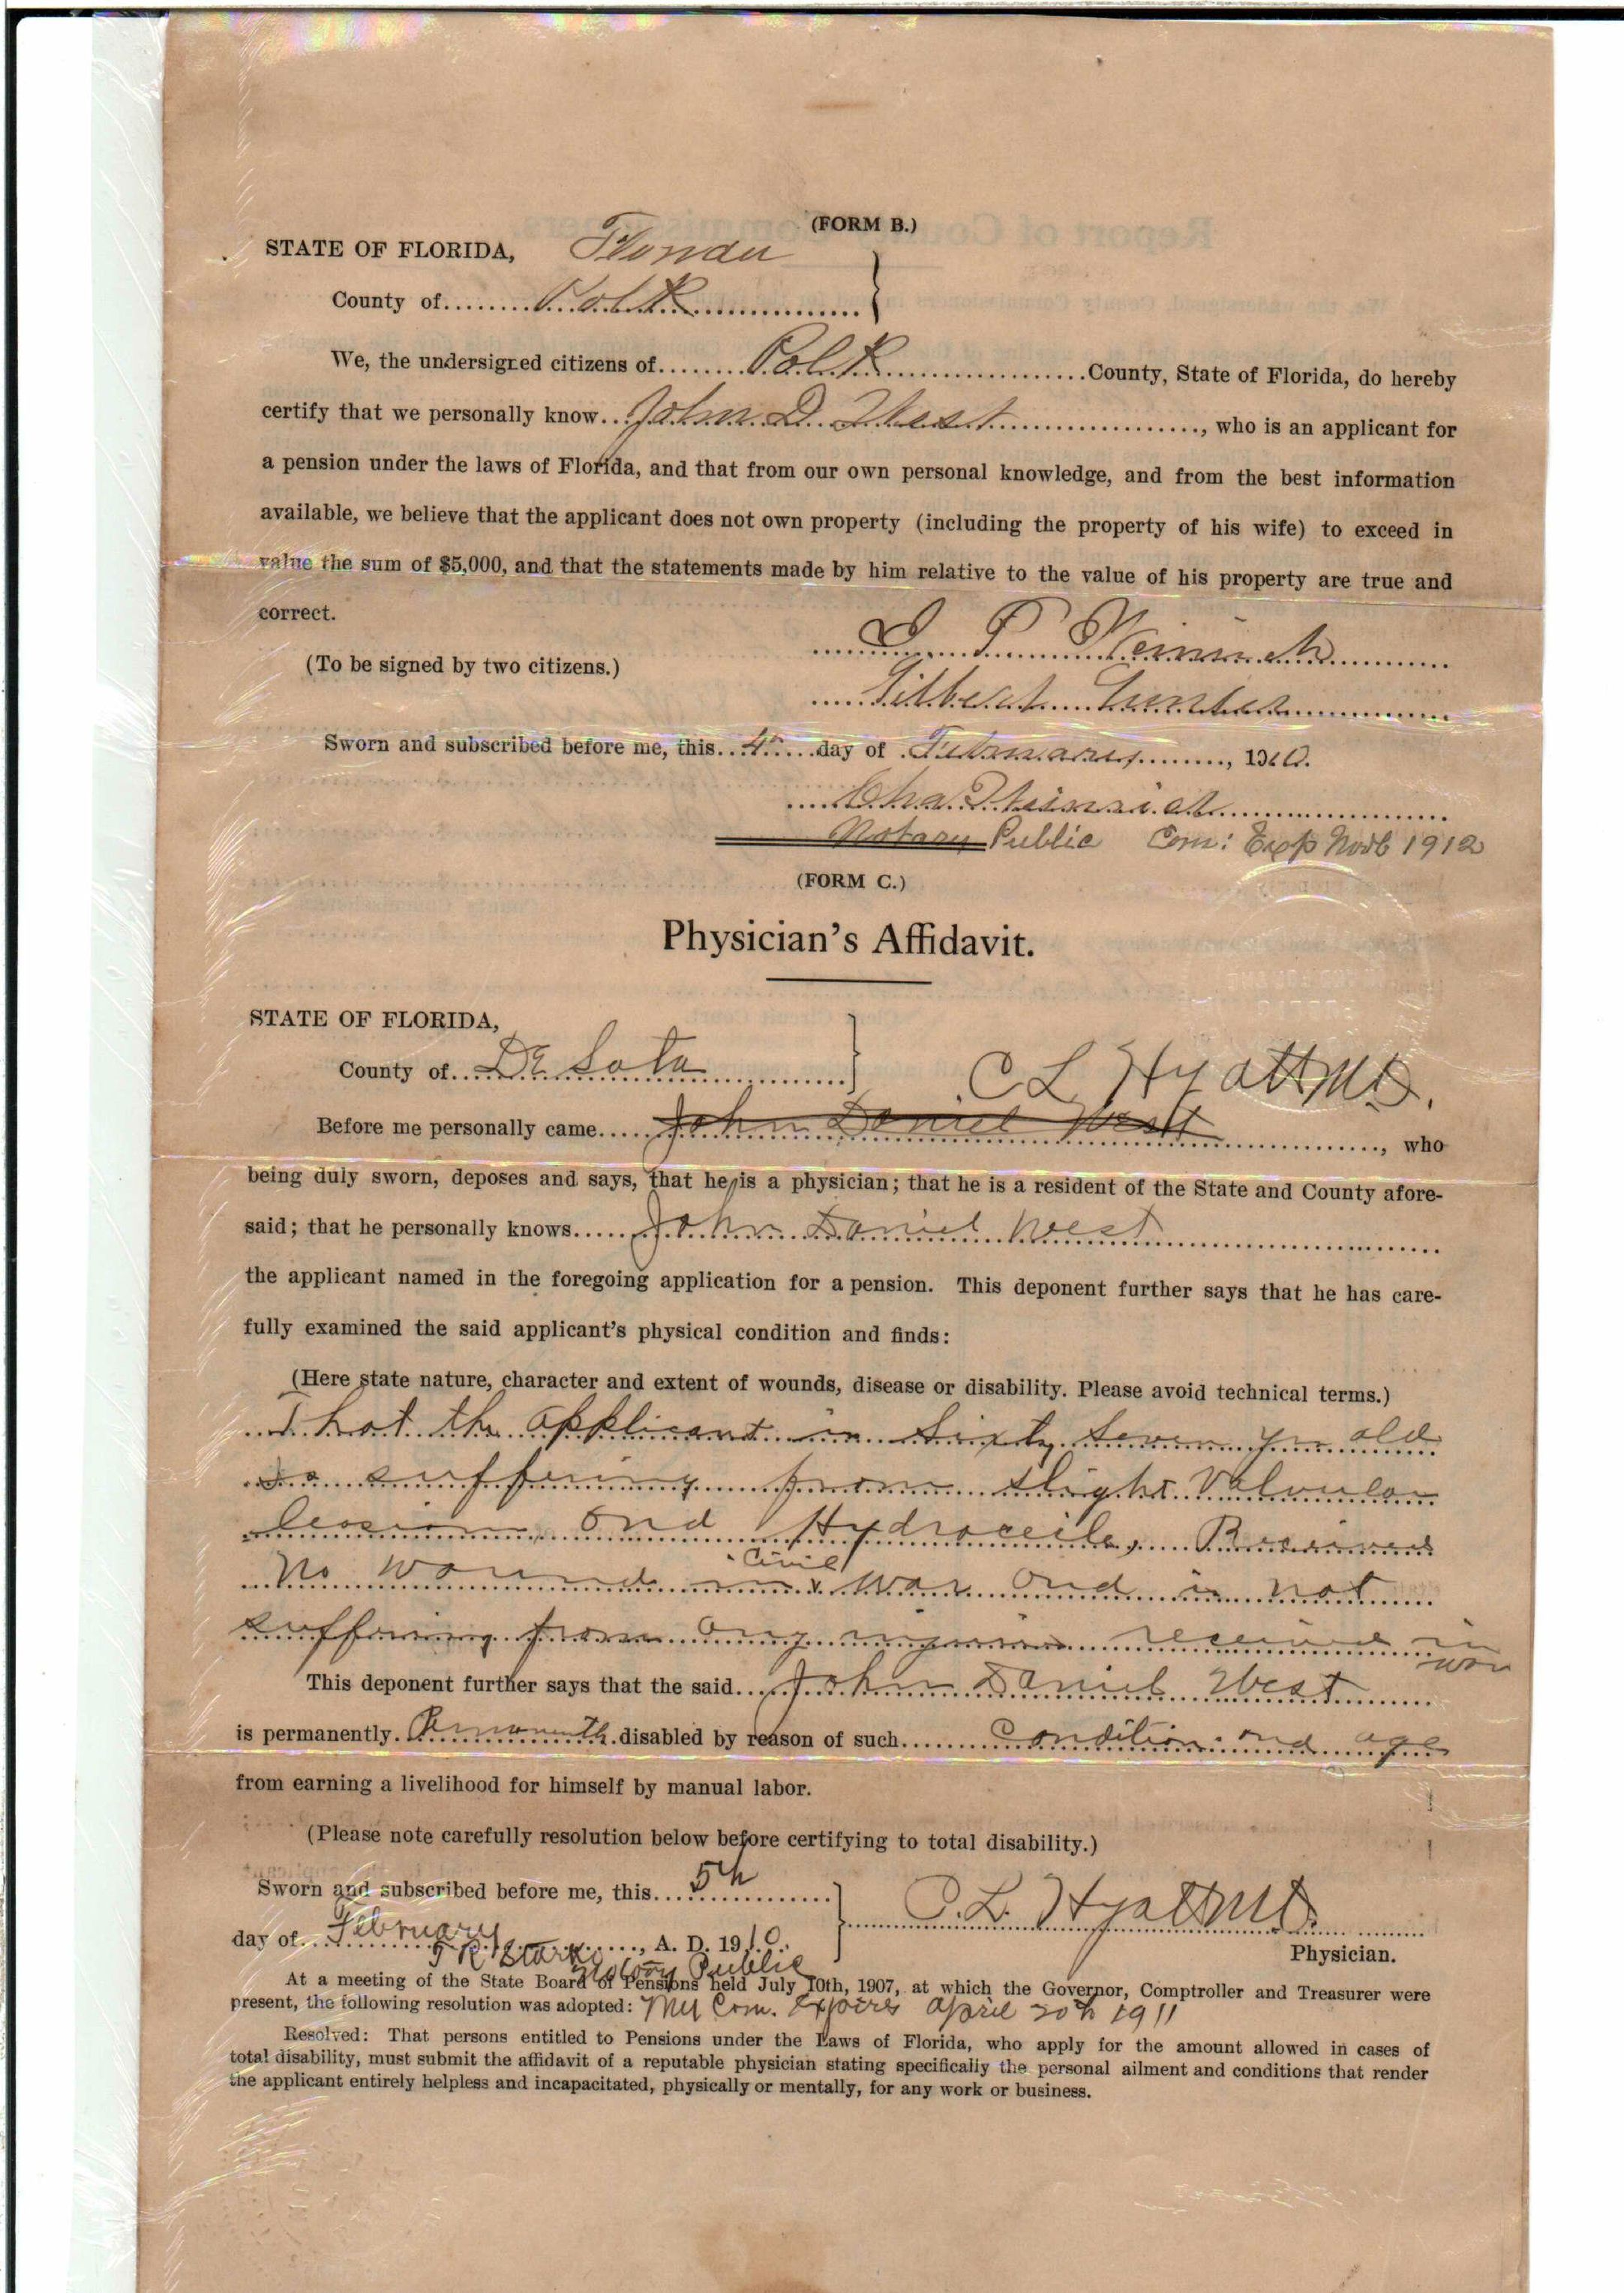 (FORM B.)
STATE OF FLORIDA, Florida
County of Polk
We, the undersigned citizens of Polk County, State of Florida, do hereby
certify that we personally know John D. West, who is an applicant for
a pension under the laws of Florida, and that from our own personal knowledge, and from the best information
available, we believe that the applicant does not own property (including the property of his wife) to exceed in
value the sum of $5,000, and that the statements made by him relative to the value of his property are true and
correct.
(To be signed by two citizens.)
Gilbert
Sworn and subscribed before me, this 4th day of February, 1910.
Notary Public Com: Exp Nov 6 1912
(FORM C.)
Physician's Affidavit.
STATE OF FLORIDA,
County of De Soto
C L Hyatt MD.
Before me personally came John Daniel West, who
being duly sworn, deposes and says, that he is a physician; that he is a resident of the State and County afore-
said; that he personally knows John Daniel West
the applicant named in the foregoing application for a pension. This deponent further says that he has care-
fully examined the said applicant's physical condition and finds:
(Here state nature, character and extent of wounds, disease or disability. Please avoid technical terms.)
That the applicant is Sixty Seven yrs old
is suffering from slight Valvular
lesion and Hydrocele, Received
no wound in Civil War and is not
suffering from any injuries received in
war
This deponent further says that the said John Daniel West
is permanently Permanently disabled by reason of such Condition and age
from earning a livelihood for himself by manual labor.
(Please note carefully resolution below before certifying to total disability.)
Sworn and subscribed before me, this 5th
day of February, A. D. 1910.
C. L. Hyatt MD.
Physician.
Stark
Notary Public
At a meeting of the State Board of Pensions held July 10th, 1907, at which the Governor, Comptroller and Treasurer were
present, the following resolution was adopted: My Com. Expires april 20th 1911
Resolved: That persons entitled to Pensions under the Laws of Florida, who apply for the amount allowed in cases of
total disability, must submit the affidavit of a reputable physician stating specifically the personal ailment and conditions that render
the applicant entirely helpless and incapacitated, physically or mentally, for any work or business.